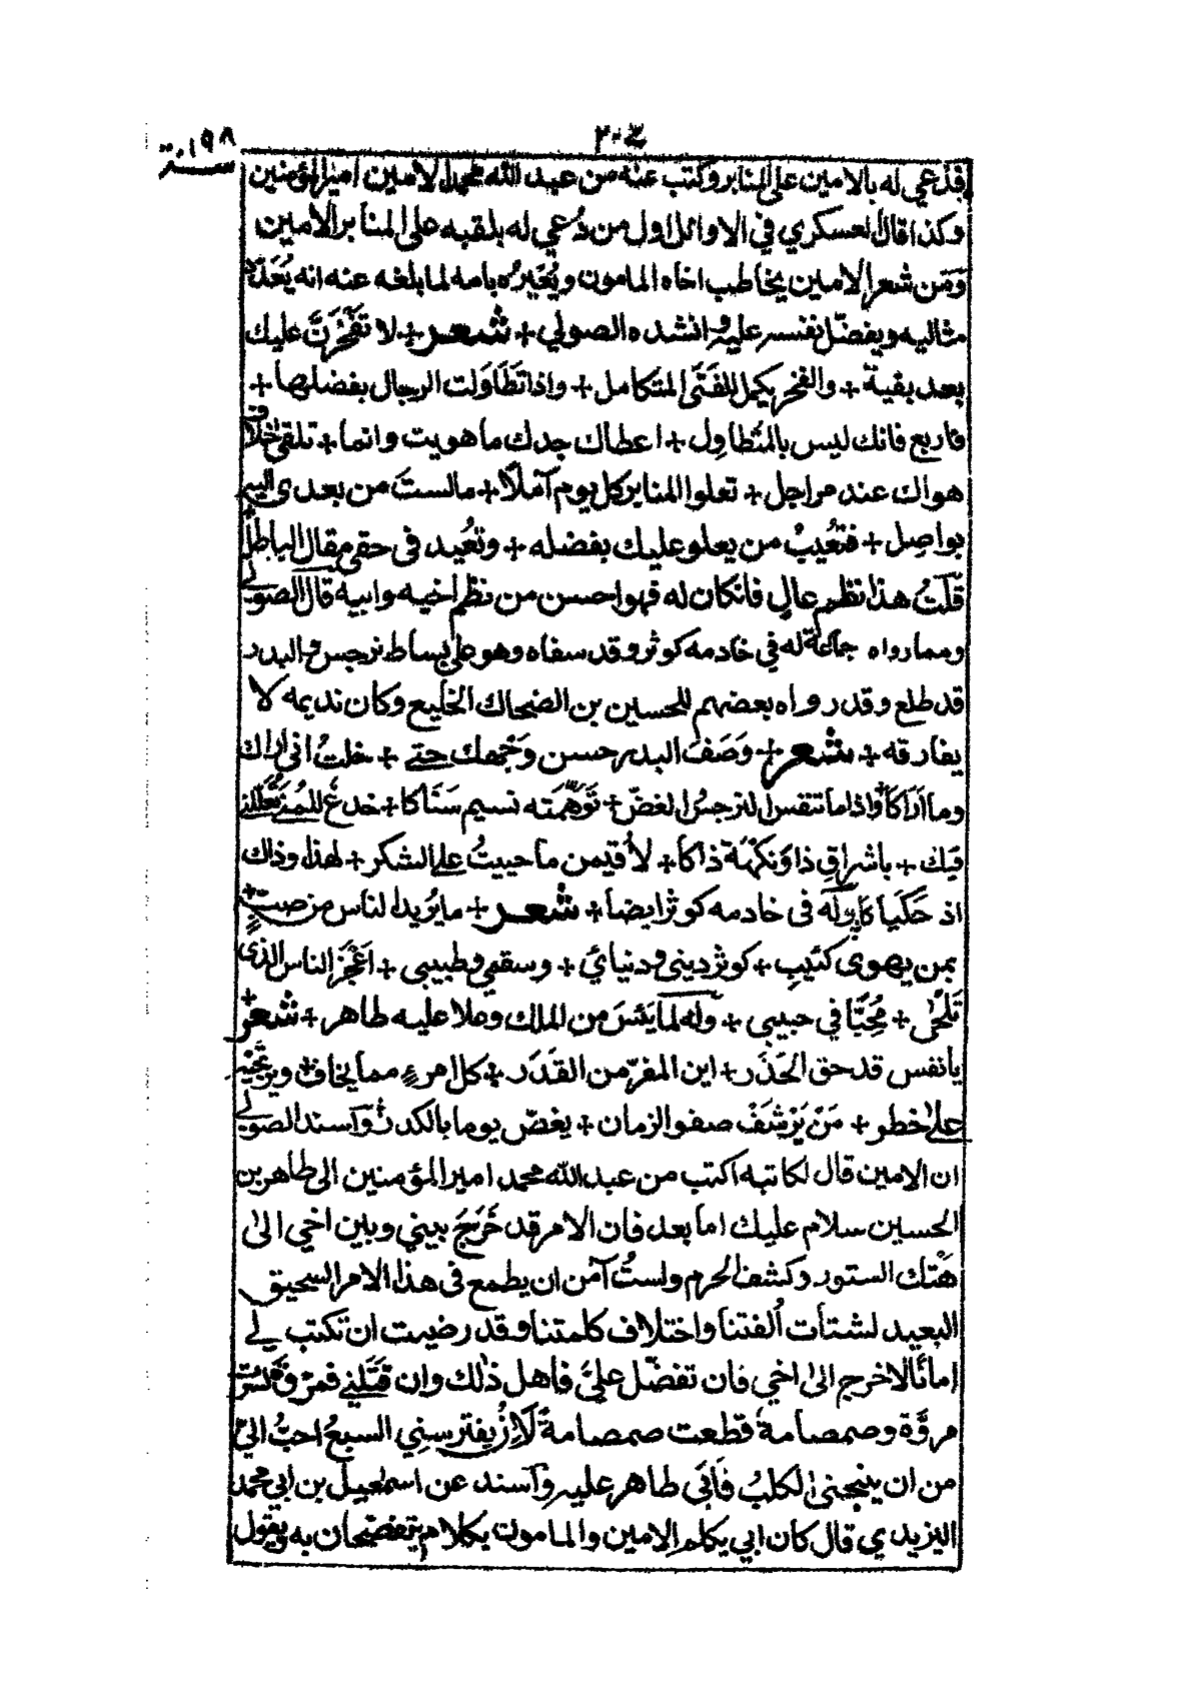 ٢٠٤
سنة ١٩٨
فدعي له بالامين على المنابر وكتب عنه من عبد الله محمد الامين امير المؤمنين
وكذا قال العسكري في الاوائل اول من دُعي له بلقبه على المنابر الامين
وَمَن شعر الامين يخاطب اخاه المامون ويُعَيِّرُه بامه لما بلغه عنه انه يُعَدِّدُ
مثالبه ويفضّل نفسه عليه وانشده الصولي + شعر + لا تَفْخَرَنَّ عليك
بعد بقية + والفخر يكمل للفَتَى المتكامل + واذا تَطَاوَلت الرجال بفضلها +
فاربع فانك ليس بالمتُطاوِل + اعطاك جدك ما هويت وانما + تلقى خلاف
هواك عند مراجل + تعلوا المنابر كل يوم آملاً + مالستَ من بعدى اليه
بواصِل + فتَعُيبُ من يعلو عليك بفضله + وتُعيد فى حقى مقال الباطلُ
قلّتُ هذا نظم عالٍ فانكان له فهو احسن من نظم اخيه وابيه قالَ الصولي
ومما رواه جماعة له في خادمه كوثر وقد سقاه وهو على بساط نرجس والبدر
قد طلع وقد رواه بعضهم للحسين بن الضحاك الخليع وكان نديمه لا
يفارقه + شعر + وَصَفَ البدر حسن وَجْهك حتے + خلتُ انى اراك
وما اَرَاكَا واذا ما تنفس النرجسُ الغضّ + تَوَهَّمَته نسيم سَنَاكا + خدعٌ للمُنَى تُعَلّلنے
فيك + باشراقِ ذا وَنَكْهَة ذاكا + لأقيمن ما حييتُ على الشكر + لهذا وذاك
اذ حَكَيَا كا + وله فى خادمه كوثر ايضا + شعر + ما يُريد الناس من صبّ +
بمن يهوى كئيبِ + كوثر دينى ودنيائي + وسقمى وطبيبى + اَعْجَزُ الناس الذى
يَلْحَى + مُحِبًّا في حبيبى + وله لما يَئسَ من الملك وعلا عليه طاهر + شعر +
يا نفس قد حق الحَذَر + اين المفرّ من القَدَر + كل امرءٍ مما يخاف + ويرتجيْه
على خطر + مَنْ يَرْشَفْ صفو الزمان + يغصّ يوما بالكدر + وآسند الصولي
ان الامين قال لكاتبه اكتب من عبد الله محمد امير المؤمنين الى طاهر بن
الحسين سلام عليك اما بعد فان الامر قد خَرَجَ بيني وبين اخي الىٰ
هَتْك الستور وكشف الحرم ولستُ آمن ان يطمع فى هذا الامر السحيق
البعيد لشتأت اُلفتنا واختلاف كلمتنا وقد رضيت ان تكتب لي
امانًا لاخرج الىٰ اخي فان تفضّل علىَّ فاهل ذلك وان قتلَنے فمرَوَة كَسَرت
مروَّة وصمصامة قطعت صمصامةً لَاِنْ يفترسنِي السبعُ احبُّ الىّ
من ان ينبحنى الكلبُ فَاَبَى طاهر عليه وآسند عن اسمٰعيل بن ابي محمد
اليزيدي قال كان ابي يكلم الامين والمامون بكلام يتفصّحان به ويقول